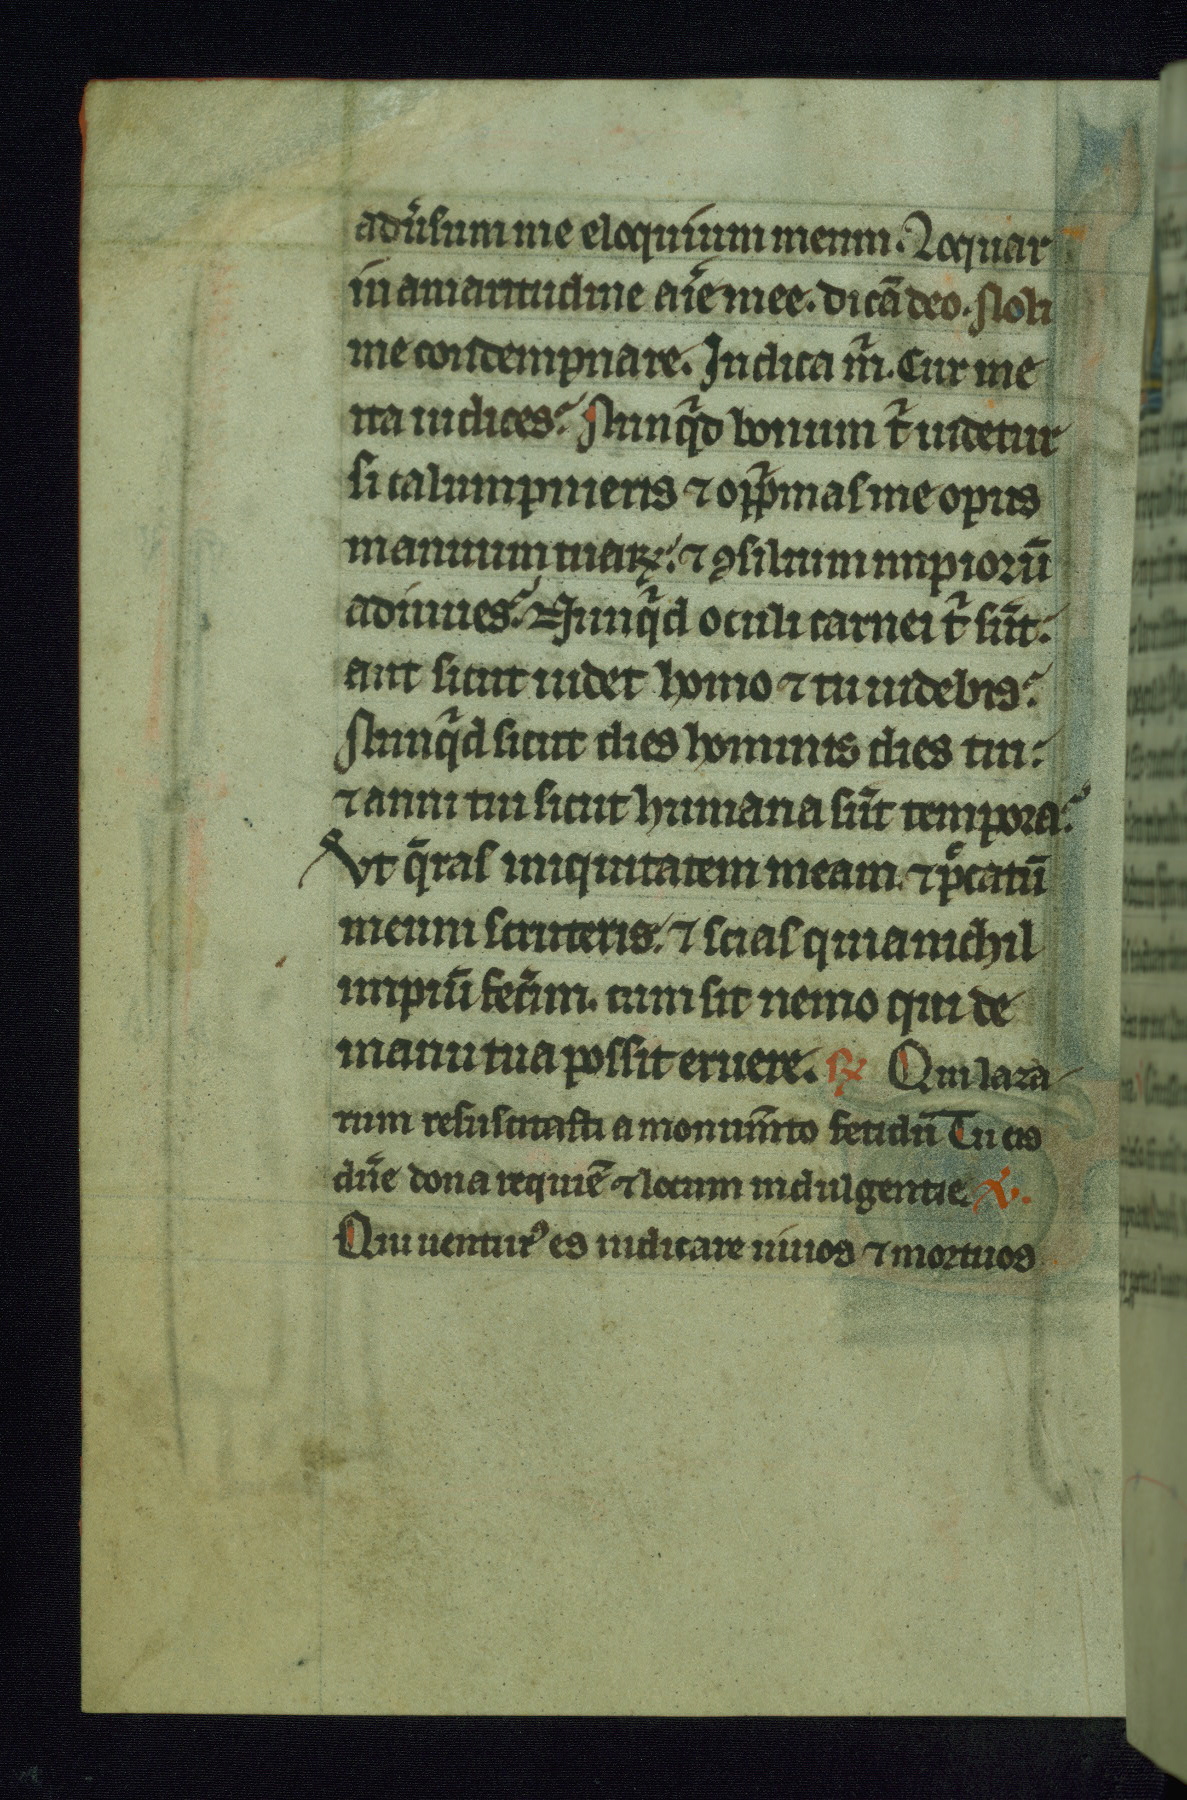 adu̾sum me eloquium meum. Loquar
in amaritudine aīe mee. dicā deo. Noli
me condempnare. Indica m̄. Cur me
ita iudices? Nunqͥd bonum tͥ uidetur
si calumpnieris ⁊ opp̄mas me opus
manuum tuaꝝ: ⁊ ꝯsilium impiorū
adiuues? Nunqͥd oculi carnei tͥ sūt:
aut sicut uidet homo ⁊ tu uidebis?
Nunqͥd sicut dies hominis dies tui:
⁊ anni tui sicut humana sūt tempora?
Ut q̄ras iniquitatem meam. ⁊ p̄catū
meum scruteris. ⁊ scias quia nichil
impiū fec̾im. cum sit nemo qui de
manu tua possit eruere. ℟ Qui laza
rum resuscitasti a monum̄to fetidū Tu eis
dn̄e dona requiē ⁊ locum indulgentie. ℣.
Qui uenturꝰ es iudicare uiuos ⁊ mortuos